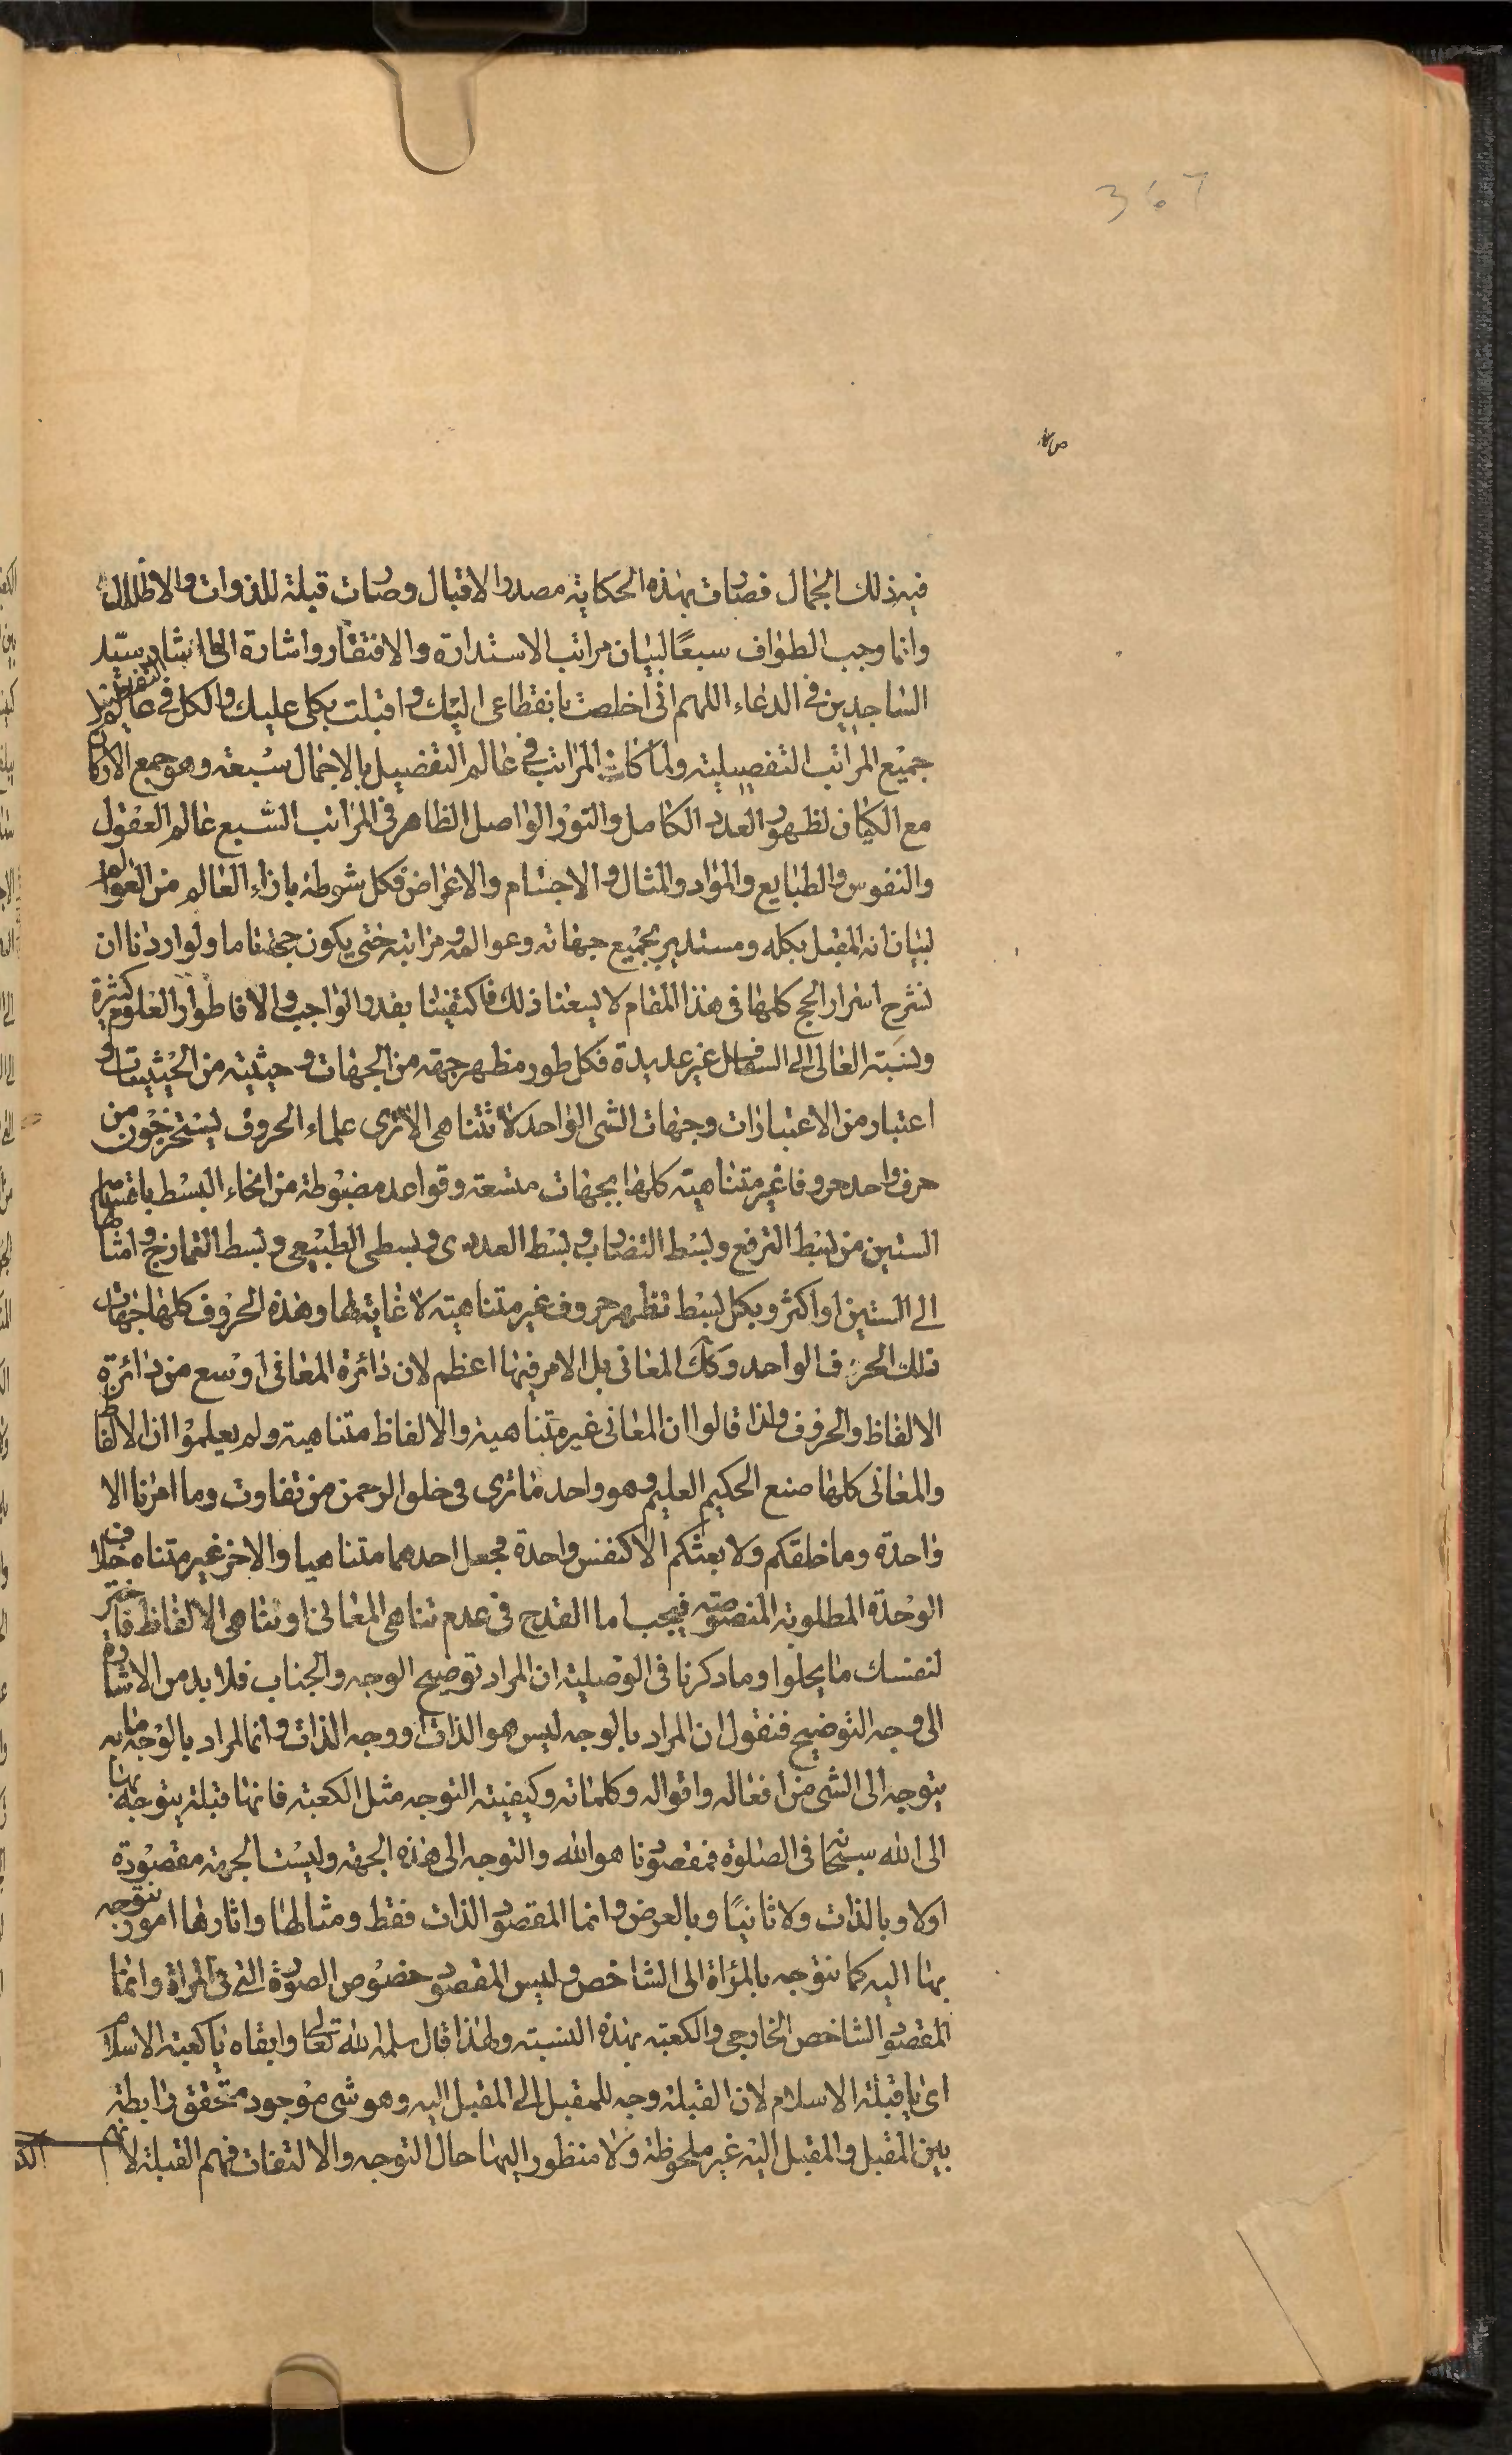 367
ص
فيه ذلك الجمال فصارت بهذه الحكاية مصدر الاقبال وصارت قبلة للذوات والاظلال
وانما وجب الطواف سبعًا لبيان مراتب الاستدارة والافتقار واشارة الى انشاد سيّد
الساجدين في الدعاء اللهم انى اخلصت بانقطاعى اليك واقبلت بكلى عليك والكل فى عالم التفصيل
جميع المراتب التفصيلية ولما كانت المراتب فى عالم التفصيل بالاجمال سبعة وهو جمع الاركان
مع الكيان لظهور العدد الكامل والنور الواصل الظاهر فى المراتب السّبع عالم العقول
والنفوس والطبايع والمواد والمثال والاجسام والاعراض فكل شوطة بازاء العالم من العوالم
لبيان انه المقبل بكله ومستدير بجميع جهاته وعوالمه ومراتبه حتى يكون حجه تاما ولو اردنا ان
نشرح اسرار الحج كلها فى هذا المقام لا يسعنا ذلك فاكتفينا بقدر الواجب والا فاطوار العلوم كثيرة
ونسبة العالى الى السافل غير عديدة فكل طور مظهر جهة من الجهات وحيثية من الحيثيات و
اعتبار من الاعتبارات وجهات الشى الواحد لا تتناهى الا ترى علماء الحروف يستخرجون من
حرف واحد حروفا غير متناهية كلها بجهات متسعة وقواعد مضبوطة من انحاء البسط باقسامها
الستين من بسط الترفع وبسط التضارب وبسط العددى وبسطى الطبيعى وبسط التمازج وامثالها
الى الستين او اكثر وبكل بسط تظهر حروف غير متناهية لا غاية لها وهذه الحروف كلها جهات
تلك الحرف الواحد وكك المعانى بل الامر فيها اعظم لان دائرة المعانى اوسع من دائرة
الالفاظ والحروف ولذا قالوا ان المعانى غير متناهية والالفاظ متناهية ولم يعلموا ان الالفاظ
والمعانى كلها صنع الحكيم العليم وهو واحد ما ترى فى خلق الرحمن من تفاوت وما امرنا الا
واحدة وما خلقكم ولا بعثكم الا كنفس واحدة فجعل احدهما متناهيا والاخر غير متناه خلاف
الوحدة المطلوبة المنصوصة فيجب اما القدح فى عدم تناهى المعانى او تناهى الالفاظ فاختر
لنفسك ما يحلوا وما ذكرنا فى الوصلية ان المراد توضيح الوجه والجناب فلا بد من الاشارة
الى وجه التوضيح فنقول ان المراد بالوجه ليس هو الذات او وجه الذات وانما المراد بالوجه ما به
يتوجه الى الشى من افعاله واقواله وكلماته وكيفية التوجه مثل الكعبة فانها قبلة يتوجه بها
الى الله سبحانه فى الصلوة فمقصودنا هو الله والتوجه الى هذه الجهة وليست الجهة مقصودة
اولا وبالذات ولا ثانيًا وبالعرض وانما المقصود الذات فقط ومثالها واثارها امور نتوجه
بها اليه كما نتوجه بالمرآة الى الشاخص وليس المقصود خصوص الصورة التى فى المرآة وانما
المقصود الشاخص الخارجى والكعبة بهذه النسبة ولهذا قال سلمه الله تعالى وابقاه يا كعبة الاسلام
اى يا قبلة الاسلام لان القبلة وجه للمقبل الى المقبل اليه وهو شى موجود متحقق رابطة
بين المقبل والمقبل اليه غير ملحوظة ولا منظور اليها حال التوجه والالتفات فهم القبلة لانهم